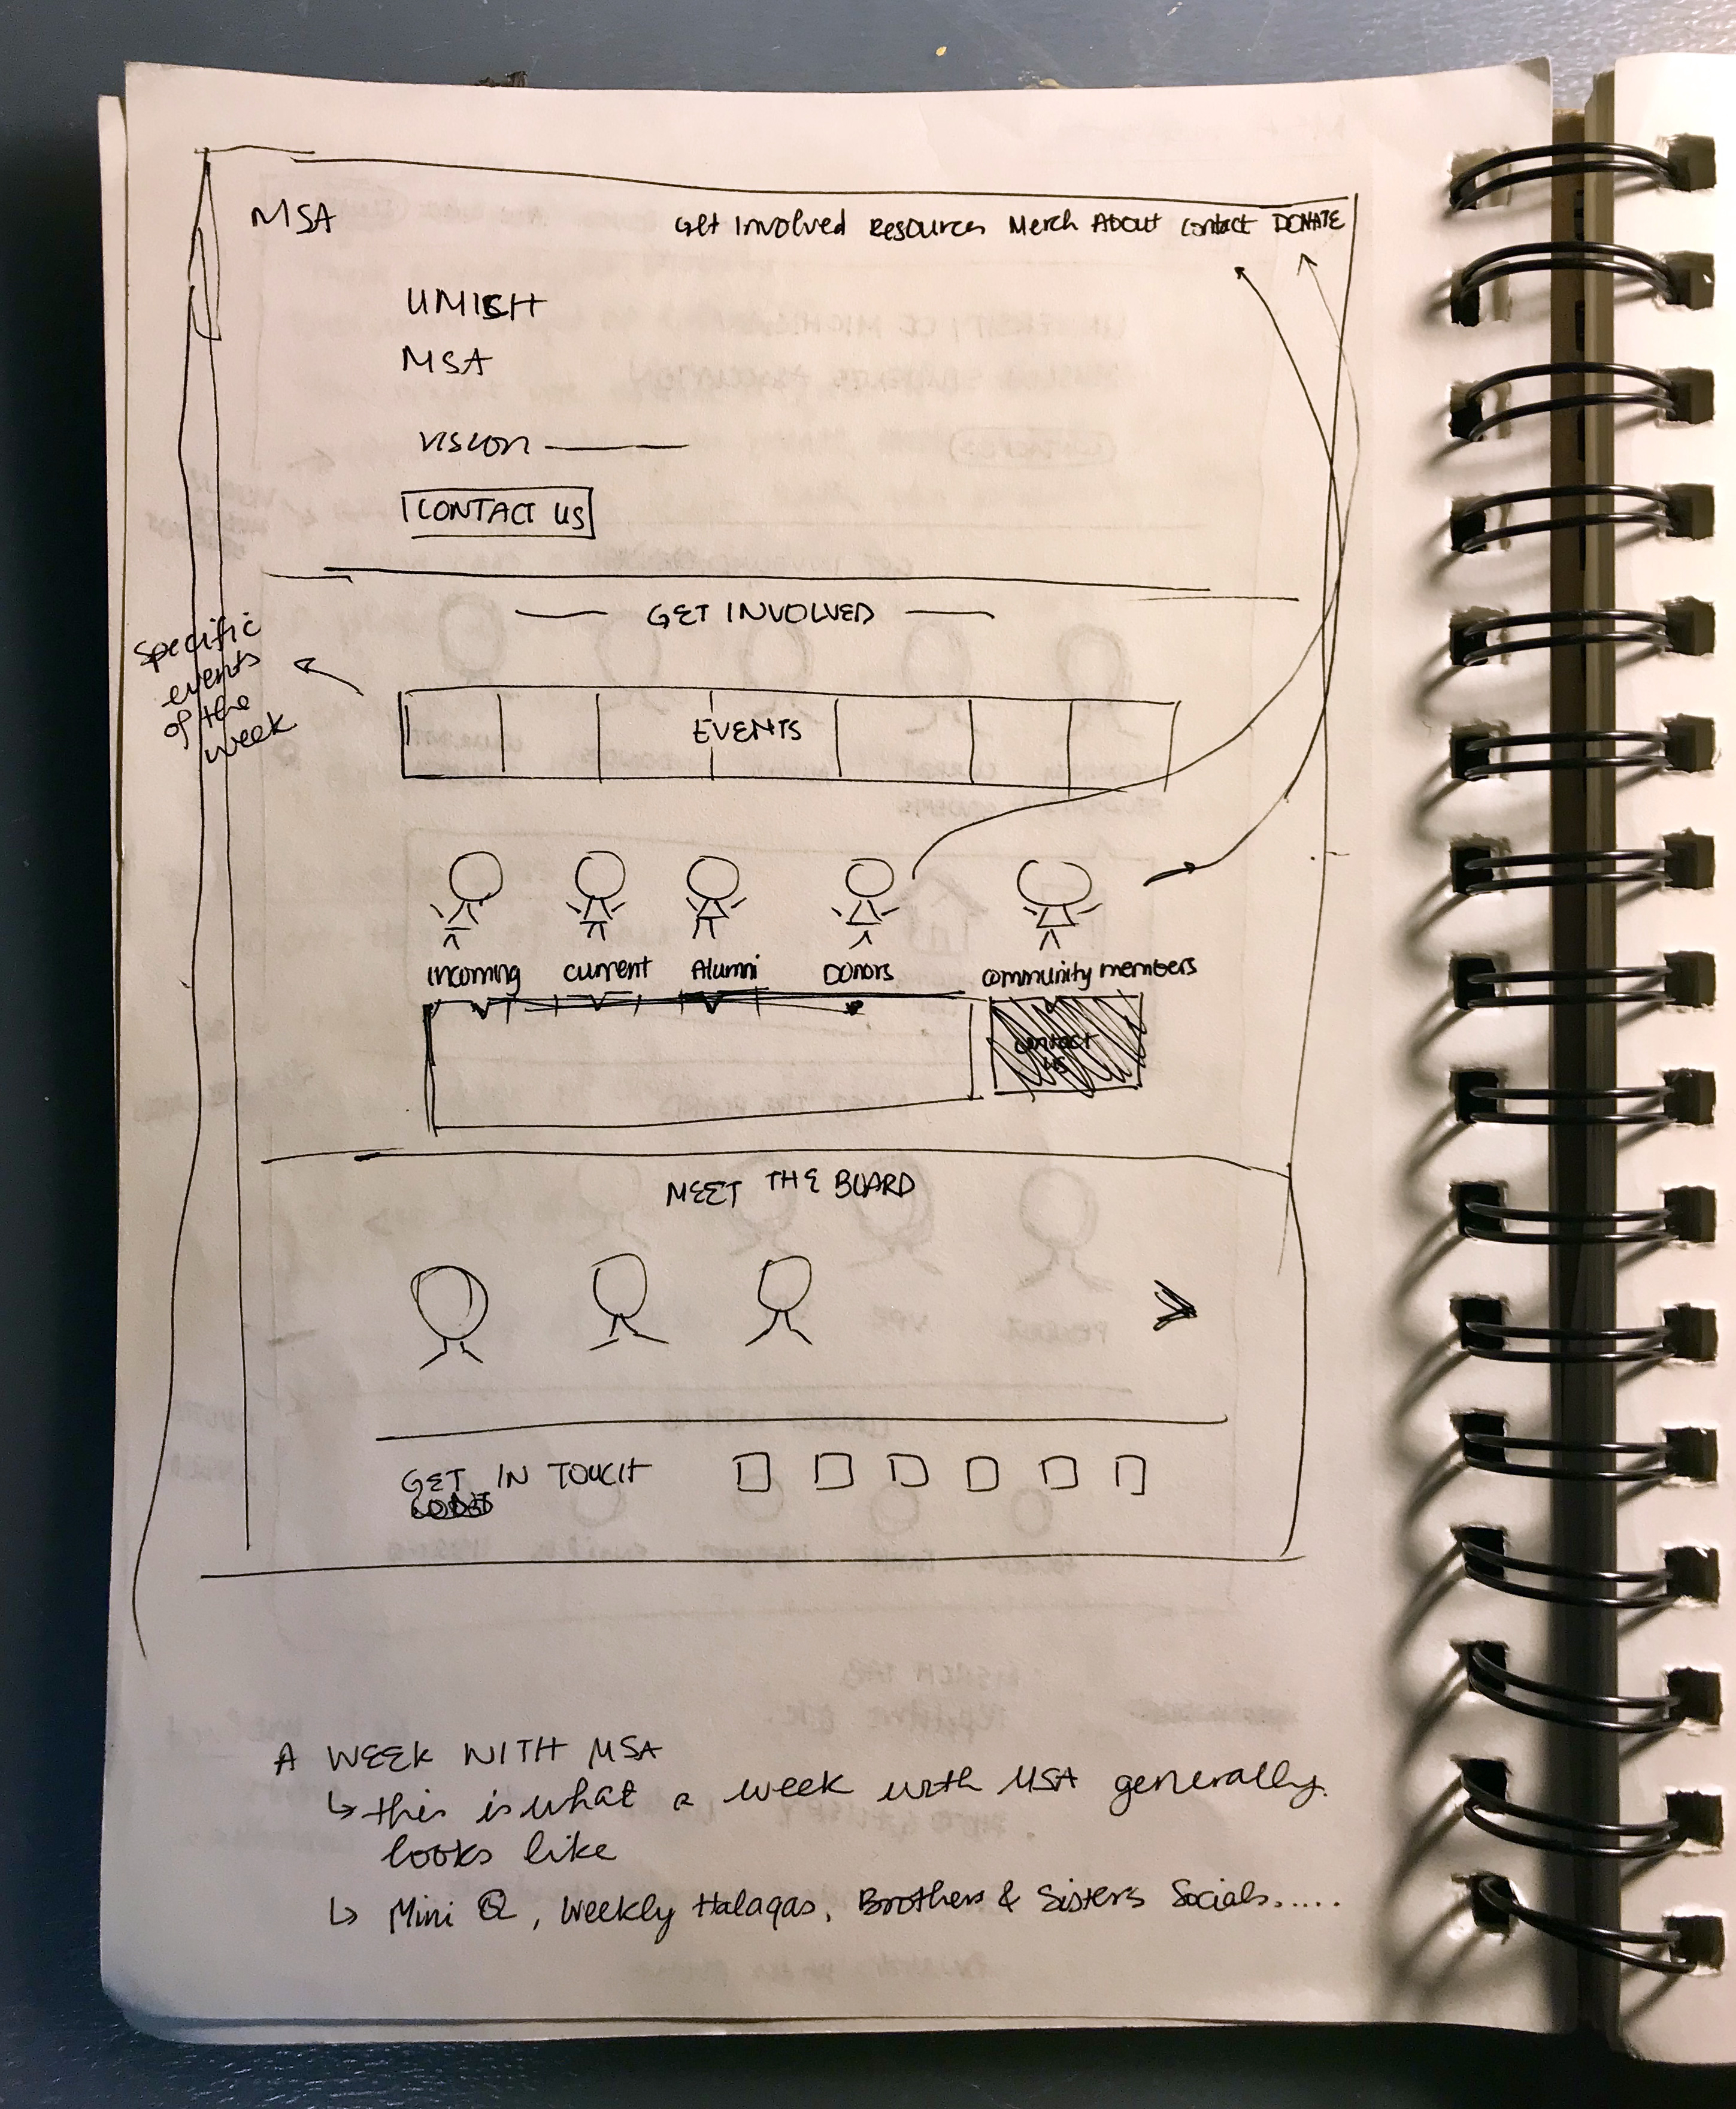 MSA
Get Involved Resources Merch About Contact DONATE
UMICH
MSA
VISION
CONTACT US
GET INVOLVED
Specific
events
of the
week
EVENTS
incoming current Alumni Donors community members
contact
us
MEET THE BOARD
GET IN TOUCH
A WEEK WITH MSA
↳ this is what a week with MSA generally
looks like
↳ Mini Q, Weekly Halaqas, Brothers & Sisters Socials.....